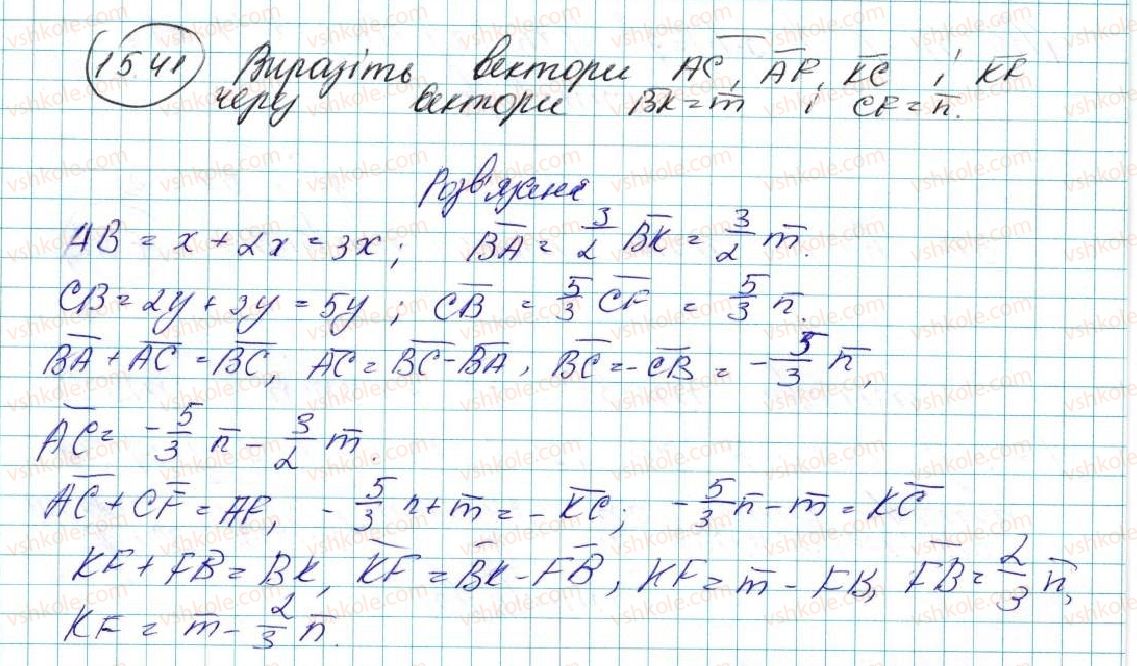 1541 Виразіть вектори \overline{AC}, \overline{AF}, \overline{KC} і \overline{KF}
через вектори \overline{BK} = \overline{m} і \overline{CF} = \overline{n}.
Розв'язання
AB = x + 2x = 3x; \overline{BA} = \frac{3}{2} \overline{BK} = \frac{3}{2} \overline{m}.
CB = 2y + 3y = 5y; \overline{CB} = \frac{5}{3} \overline{CF} = \frac{5}{3} \overline{n}.
\overline{BA} + \overline{AC} = \overline{BC}, \overline{AC} = \overline{BC} - \overline{BA}, \overline{BC} = -\overline{CB} = -\frac{5}{3} \overline{n},
\overline{AC} = -\frac{5}{3} \overline{n} - \frac{3}{2} \overline{m}.
\overline{AC} + \overline{CF} = AF, -\frac{5}{3} n + \overline{m} = -\overline{KC}; -\frac{5}{3} \overline{n} - \overline{m} = \overline{KC}
KF + FB = BK, \overline{KF} = \overline{BK} - \overline{FB}, KF = \overline{m} - FB, \overline{FB} = \frac{2}{3} \overline{n},
KF = \overline{m} - \frac{2}{3} \overline{n}.